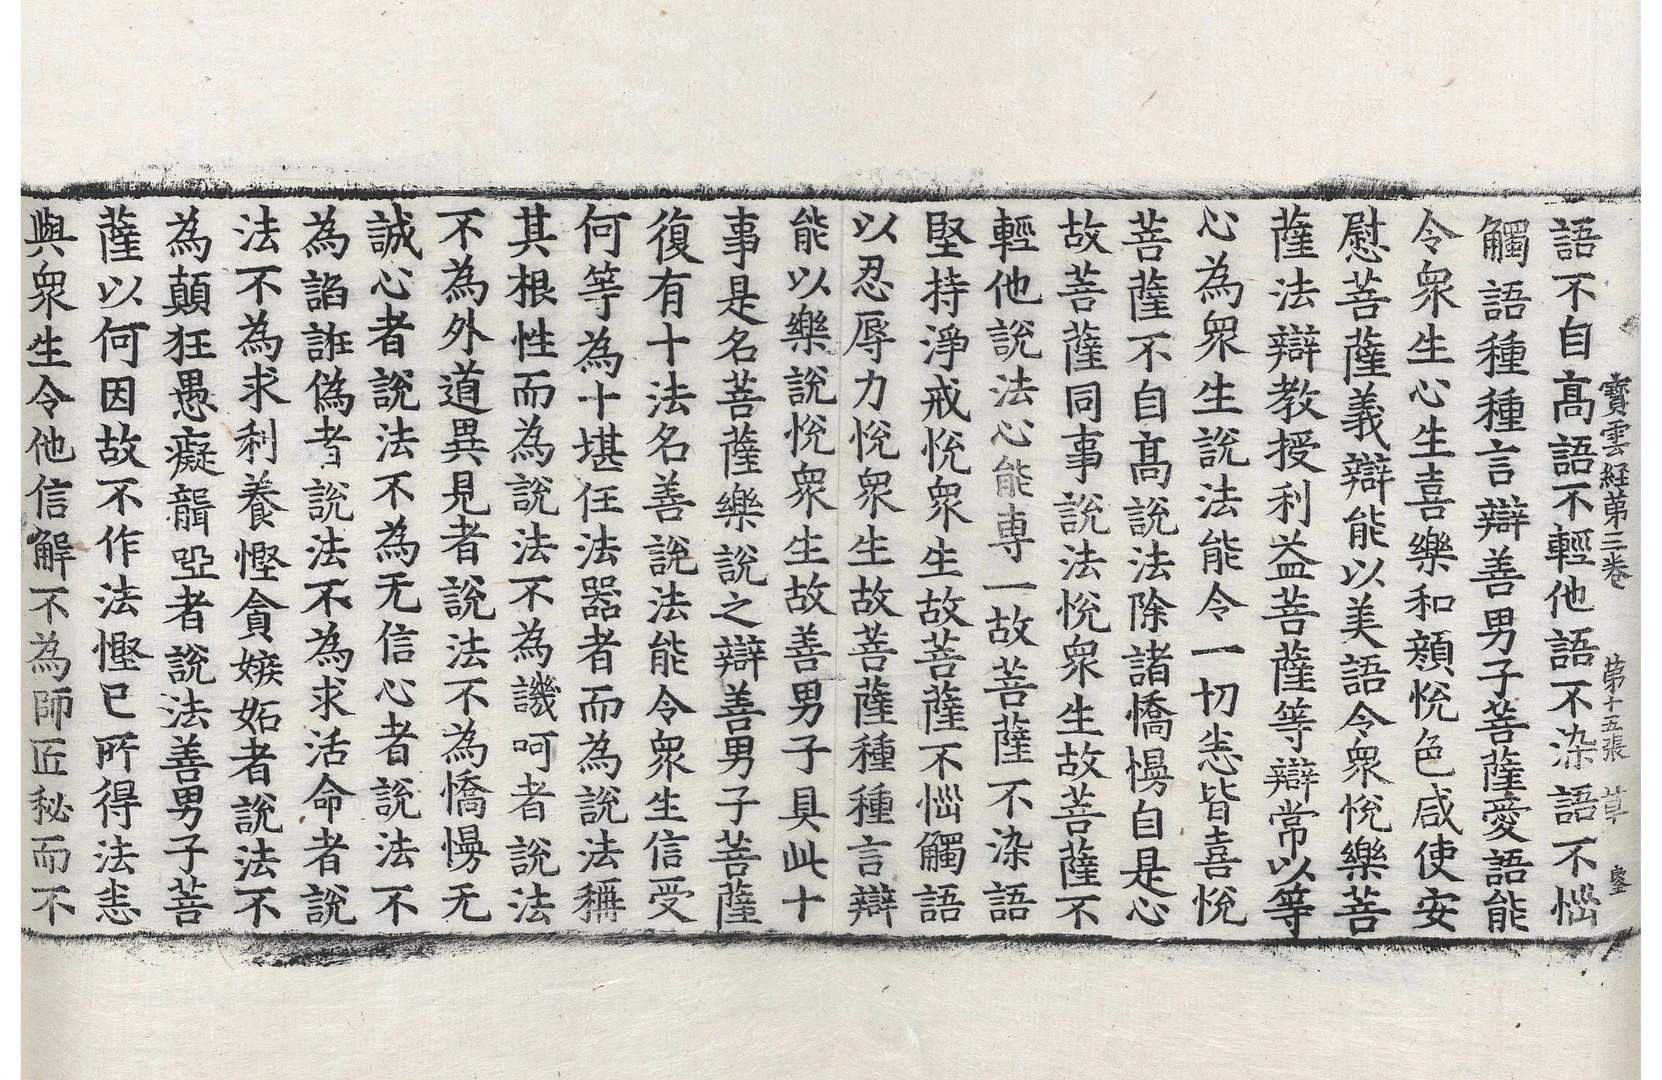 寳雲経第三卷 第十五張 草
語不自髙語不輕他語不染語不惱
觸語種種言辯善男子菩薩愛語能
令衆生心生喜樂和顔悅色咸使安
慰菩薩義辯能以美語令衆悅樂菩
薩法辯教授利益菩薩等辯常以等
心為衆生說法能令一切悉皆喜悅
菩薩不自髙說法除諸憍慢自是心
故菩薩同事說法悅衆生故菩薩不
輕他說法心能専一故菩薩不染語
堅持淨戒悅衆生故菩薩不惱觸語
以忍辱力悅衆生故菩薩種種言辯
能以樂說悅衆生故善男子具此十
事是名菩薩樂說之辯善男子菩薩
復有十法名善說法能令衆生信受
何等為十堪任法器者而為說法稱
其根性而為說法不為譏呵者說法
不為外道異見者說法不為憍慢无
誠心者說法不為无信心者說法不
為諂誑偽者說法不為求活命者說
法不為求利養慳貪嫉妬者說法不
為顛狂愚癡聾啞者說法善男子菩
薩以何因故不作法慳已所得法悉
與衆生令他信解不為師匠秘而不